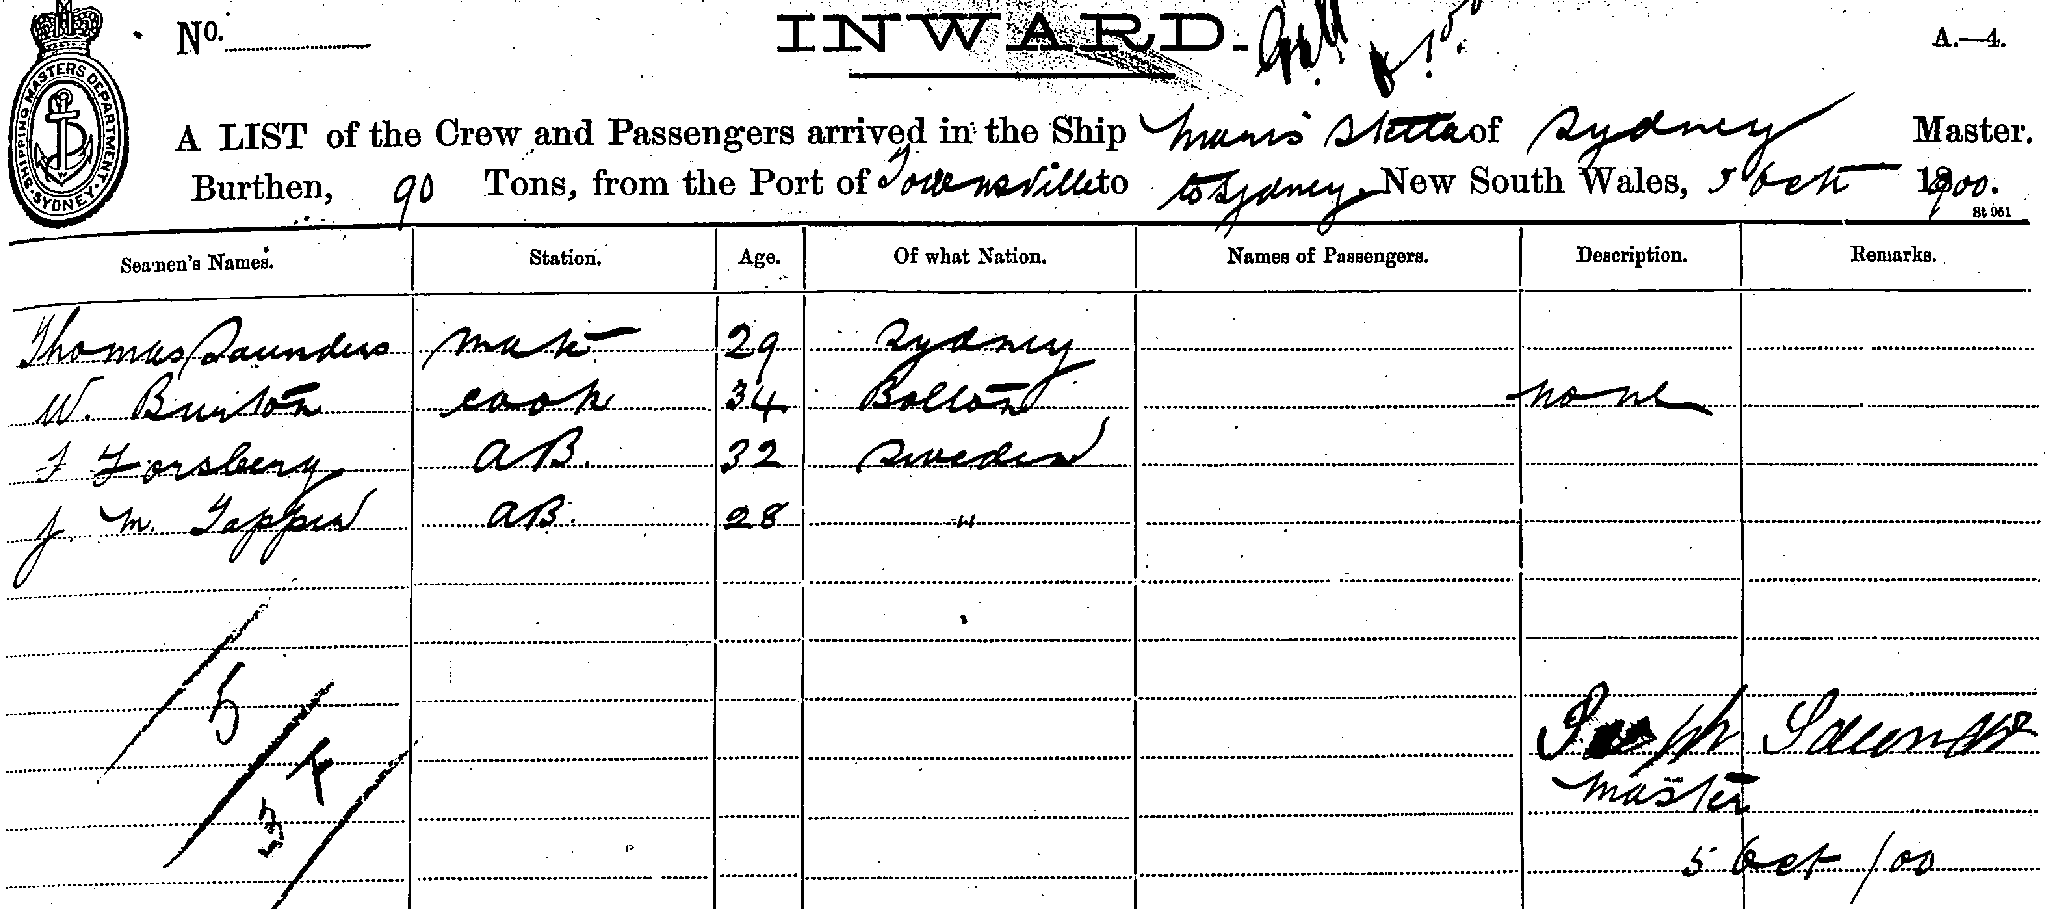 No.
INWARD.
A.—4.
SHIPPING MASTERS DEPARTMENT. SYDNEY.
A LIST of the Crew and Passengers arrived in the Ship Maris Stella of Sydney Master.
Burthen, 90 Tons, from the Port of Townsville to to Sydney New South Wales, 5 Oct 1900.
St 961
Seamen's Names. Station. Age. Of what Nation. Names of Passengers. Description. Remarks.
Thomas Saunders mate 29 Sydney
W. Burton cook 34 Bolton none
F Forsberg AB. 32 Sweden
J. M. Tappen AB. 28 "
5
4
3
Joseph
Master
5 Oct /00